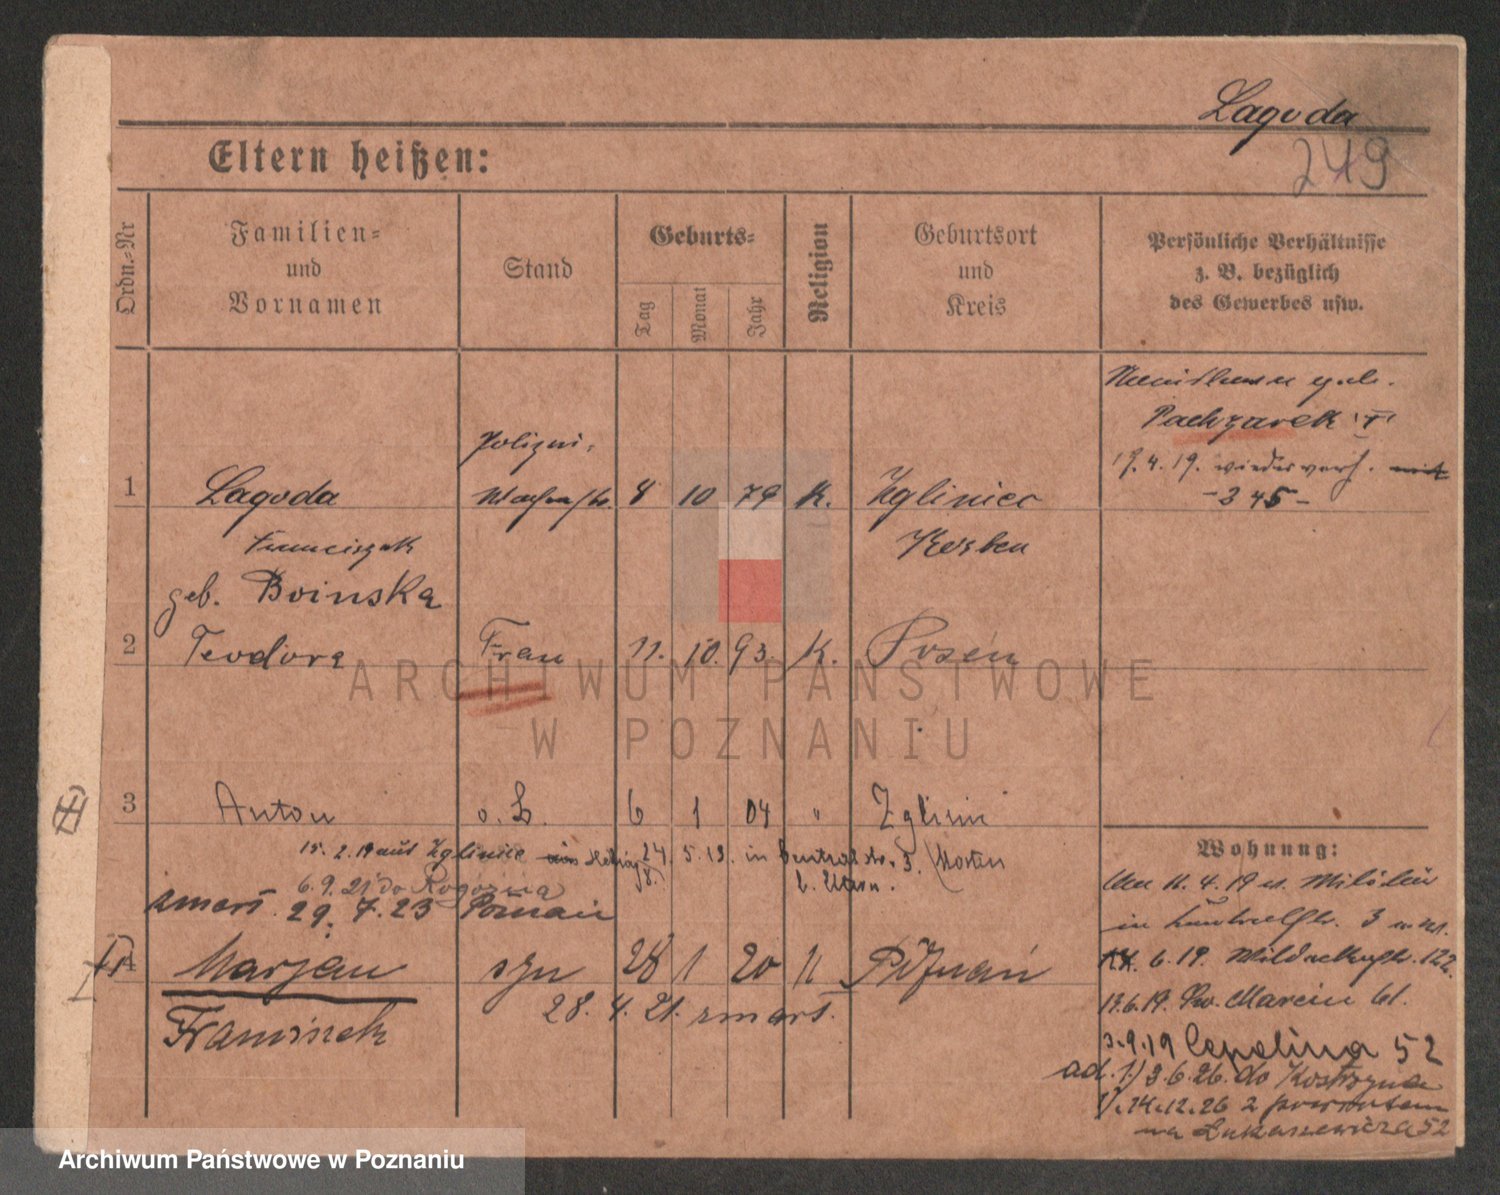 Lagoda
249
Eltern heißen:
Ordn.-Nr
Familien-
und
Vornamen
Stand
Geburts-
Tag
Monat
Jahr
Religion
Geburtsort
und
Kreis
Persönliche Verhältnisse
z. B. bezüglich
des Gewerbes usw.
Pachzarek
19.4.19. wieder verh. mit
- 345 -
1 Lagoda 8 10 79 K. Zgliniec
Franciszek Kosten
geb. Boinska
2 Teodora Frau 11. 10. 93. K. Posen
3 Anton o. B. 6 1 04 " Zglinic
15. 2. 19 aus Zgliniec 24. 5. 19. in Centralstr. 5.
b. Eltern.
6.9.21 do Rogozna
zmarł 29. 7. 23 Poznań
4 Marjan syn 28 1 20 " Poznań
28. 4. 21. zmarł.
Franciszek
Wohnung:
11. 4. 19
in 3
6. 19. 122.
13.6.19. Św. Marcin 61.
3.9.19 52
ad. 1./ 3.6.26. do Kostrzyna
1/. 14.12.26 z powrotem
na Łukaszewicza 52
ARCHIWUM PAŃSTWOWE
W POZNANIU
Archiwum Państwowe w Poznaniu